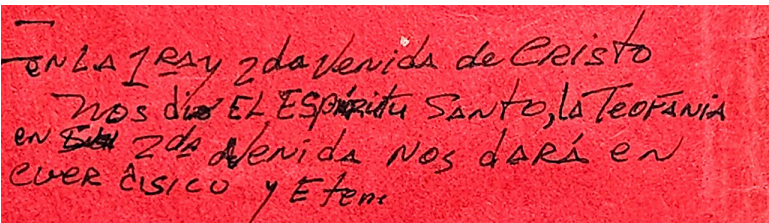 en LA 1RA y 2da Venida de Cristo
nos dio EL ESPíRitu SANTO, la TeoFANIA
en 2da Venida Nos dARÁ en
cuer físico y Etern